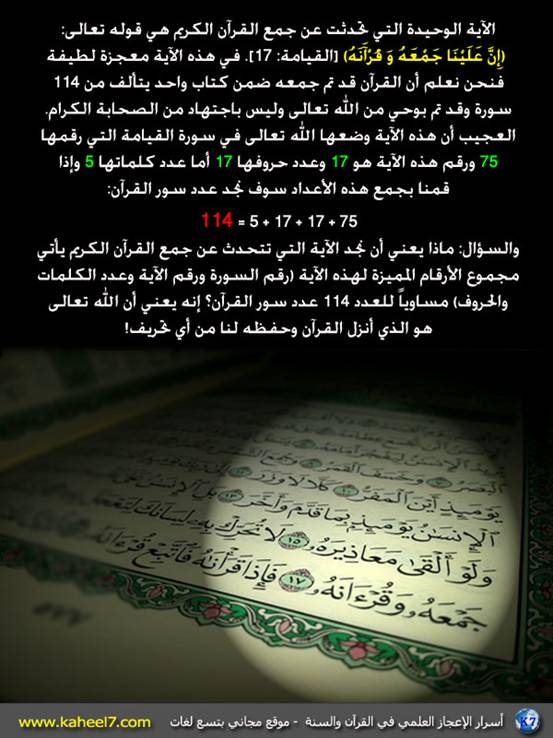 الآية الوحيدة التي تحدثت عن جمع القرآن الكريم هي قوله تعالى:
(إِنَّ عَلَيْنَا جَمْعَهُ وَ قُرْآَنَهُ) [القيامة: 17]. في هذه الآية معجزة لطيفة
فنحن نعلم أن القرآن قد تم جمعه ضمن كتاب واحد يتألف من 114
سورة وقد تم بوحي من الله تعالى وليس باجتهاد من الصحابة الكرام.
العجيب أن هذه الآية وضعها الله تعالى في سورة القيامة التي رقمها
75 ورقم هذه الآية هو 17 وعدد حروفها 17 أما عدد كلماتها 5 وإذا
قمنا بجمع هذه الأعداد سوف نجد عدد سور القرآن:
114 = 5 + 17 + 17 + 75
والسؤال: ماذا يعني أن نجد الآية التي تتحدث عن جمع القرآن الكريم يأتي
مجموع الأرقام المميزة لهذه الآية (رقم السورة ورقم الآية وعدد الكلمات
والحروف) مساوياً للعدد 114 عدد سور القرآن؟ إنه يعني أن الله تعالى
هو الذي أنزل القرآن وحفظه لنا من أي تحريف!
يَوْمَئِذٍ أَيْنَ ٱلْمَفَرُّ ١٠ كَلَّا لَا وَزَرَ
ٱلْإِنسَٰنُ يَوْمَئِذٍۭ بِمَا قَدَّمَ وَأَخَّرَ ١٣ بَلِ ٱلْإِنسَٰنُ
وَلَوْ أَلْقَىٰ مَعَاذِيرَهُۥ ١٥ لَا تُحَرِّكْ بِهِۦ لِسَانَكَ لِتَعْجَلَ
جَمْعَهُۥ وَقُرْءَانَهُۥ ١٧ فَإِذَا قَرَأْنَٰهُ فَٱتَّبِعْ قُرْءَانَهُۥ
٥٧٧
أسرار الإعجاز العلمي في القرآن والسنة - موقع مجاني بتسع لغات
K7
www.kaheel7.com